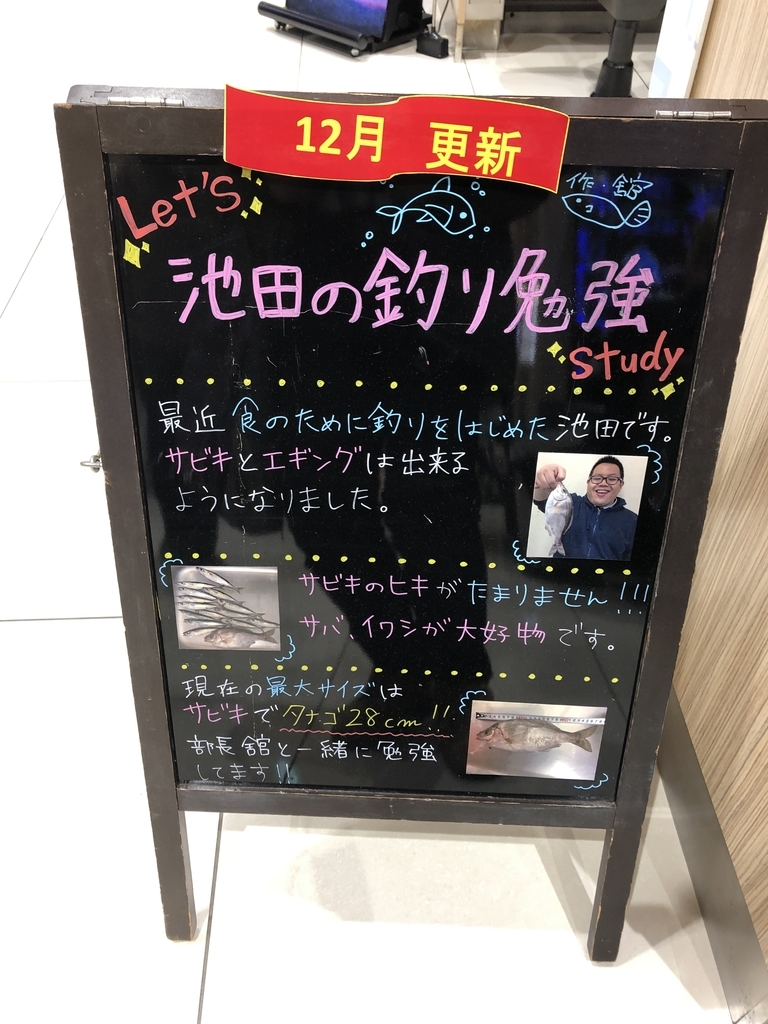 12月 更新
Let's
作・舘
池田の釣り勉強
Study
最近食のために釣りをはじめた池田です。
サビキとエギングは出来る
ようになりました。
サビキのヒキがたまりません!!!
サバ、イワシが大好物です。
現在の最大サイズは
サビキでタナゴ28cm!!
部長舘と一緒に勉強
してます!!